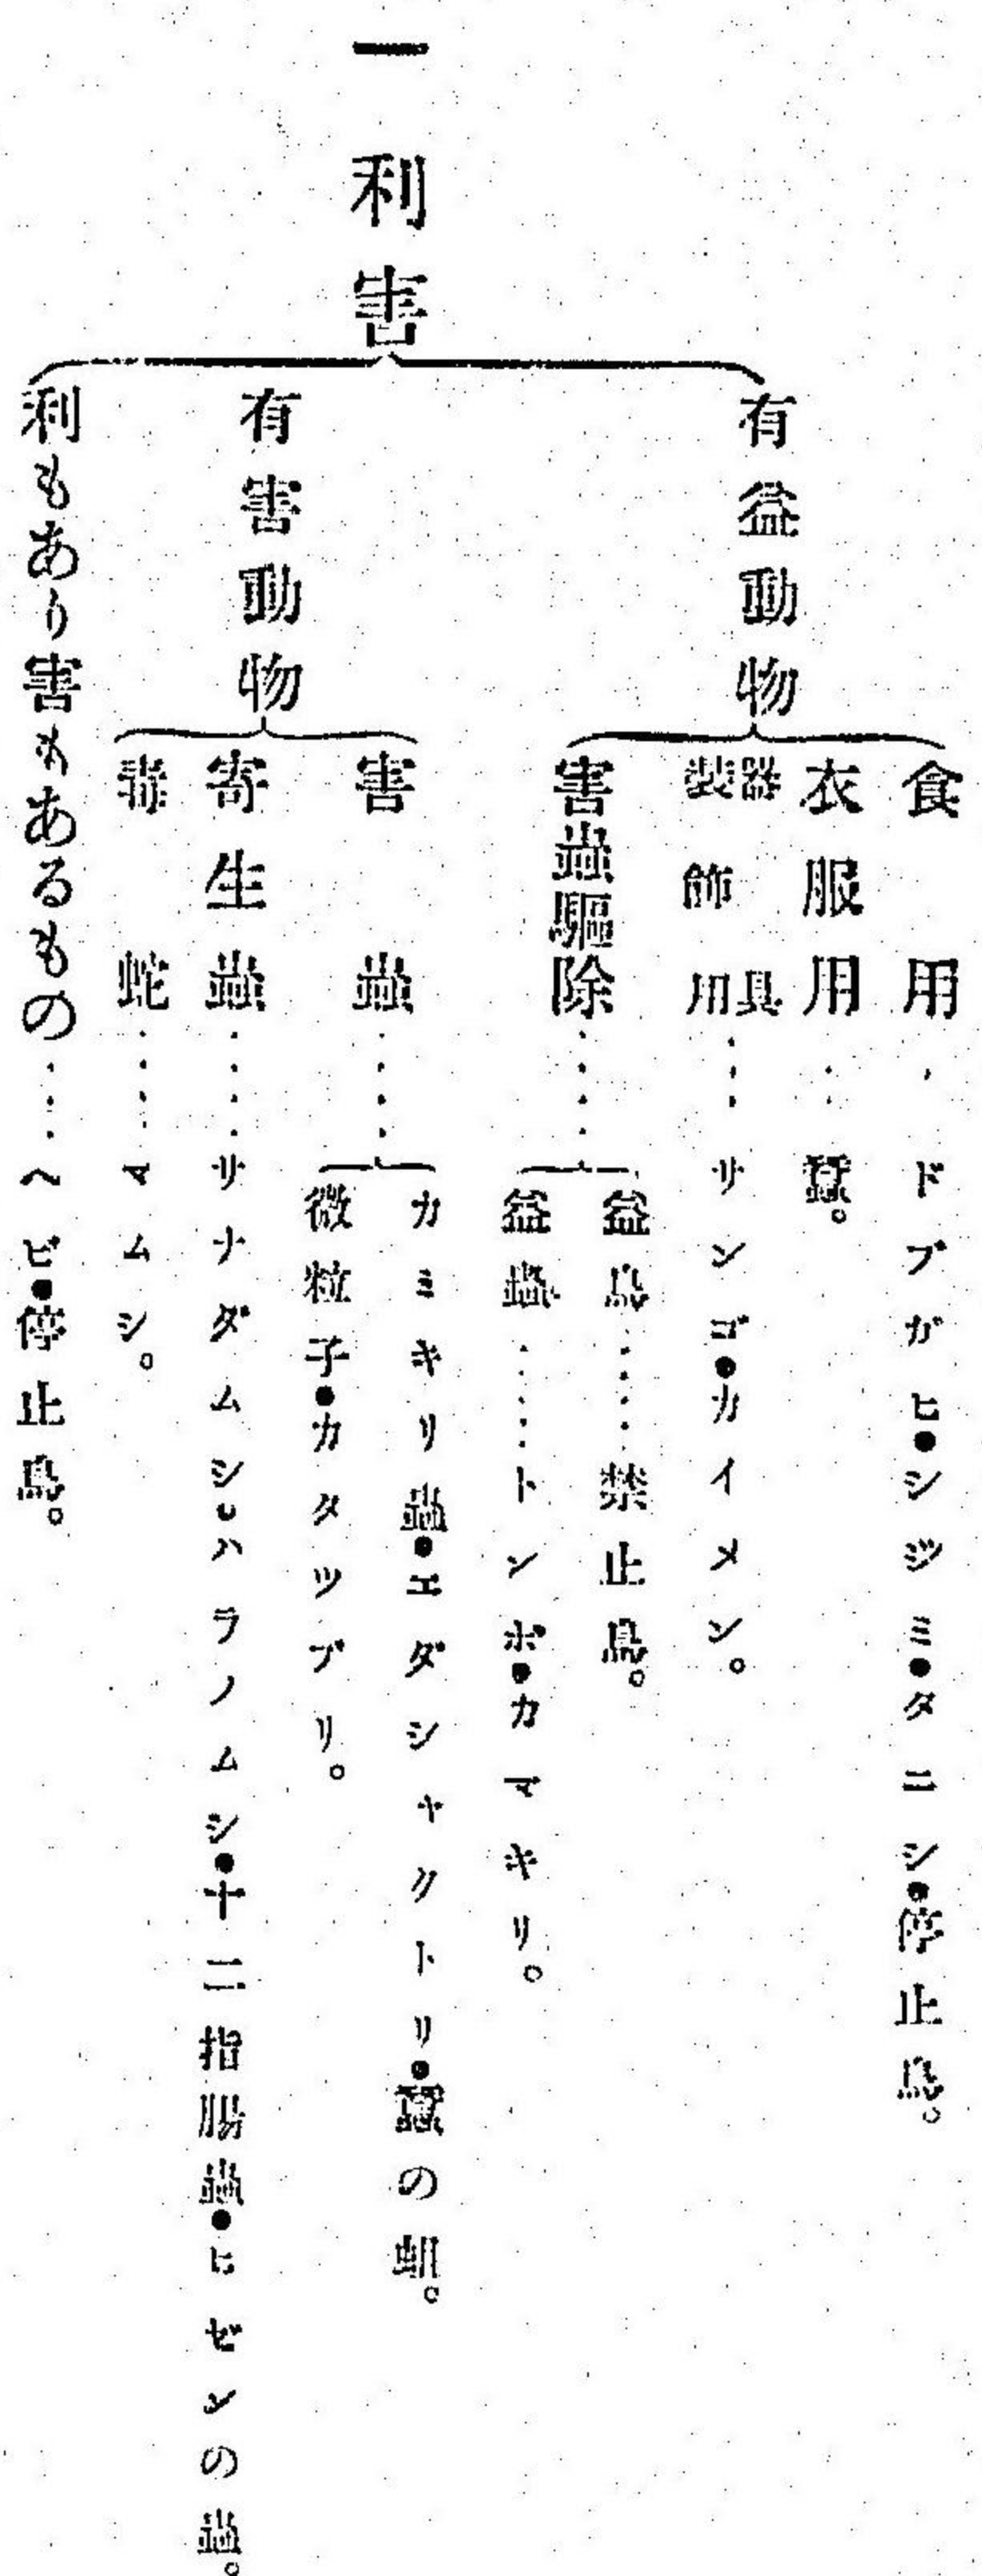 一 利害
有益動物
食用．ドブガヒ●シジミ●タニシ●停止鳥。
衣服用‥蠶。
器具
装飾用…サンゴ●カイメン。
害蟲驅除….
益鳥….禁止鳥。
益蟲….トンボ●カマキリ。
有害動物
害蟲….
カミキリ蟲●エダシャクトリ●蠶の蛆。
微粒子●カタツブリ。
寄生蟲….サナダムシ●ハラノムシ●十二指腸蟲●ヒゼンの蟲。
毒蛇….マムシ。
利もあり害もあるもの….ヘビ●停止鳥。